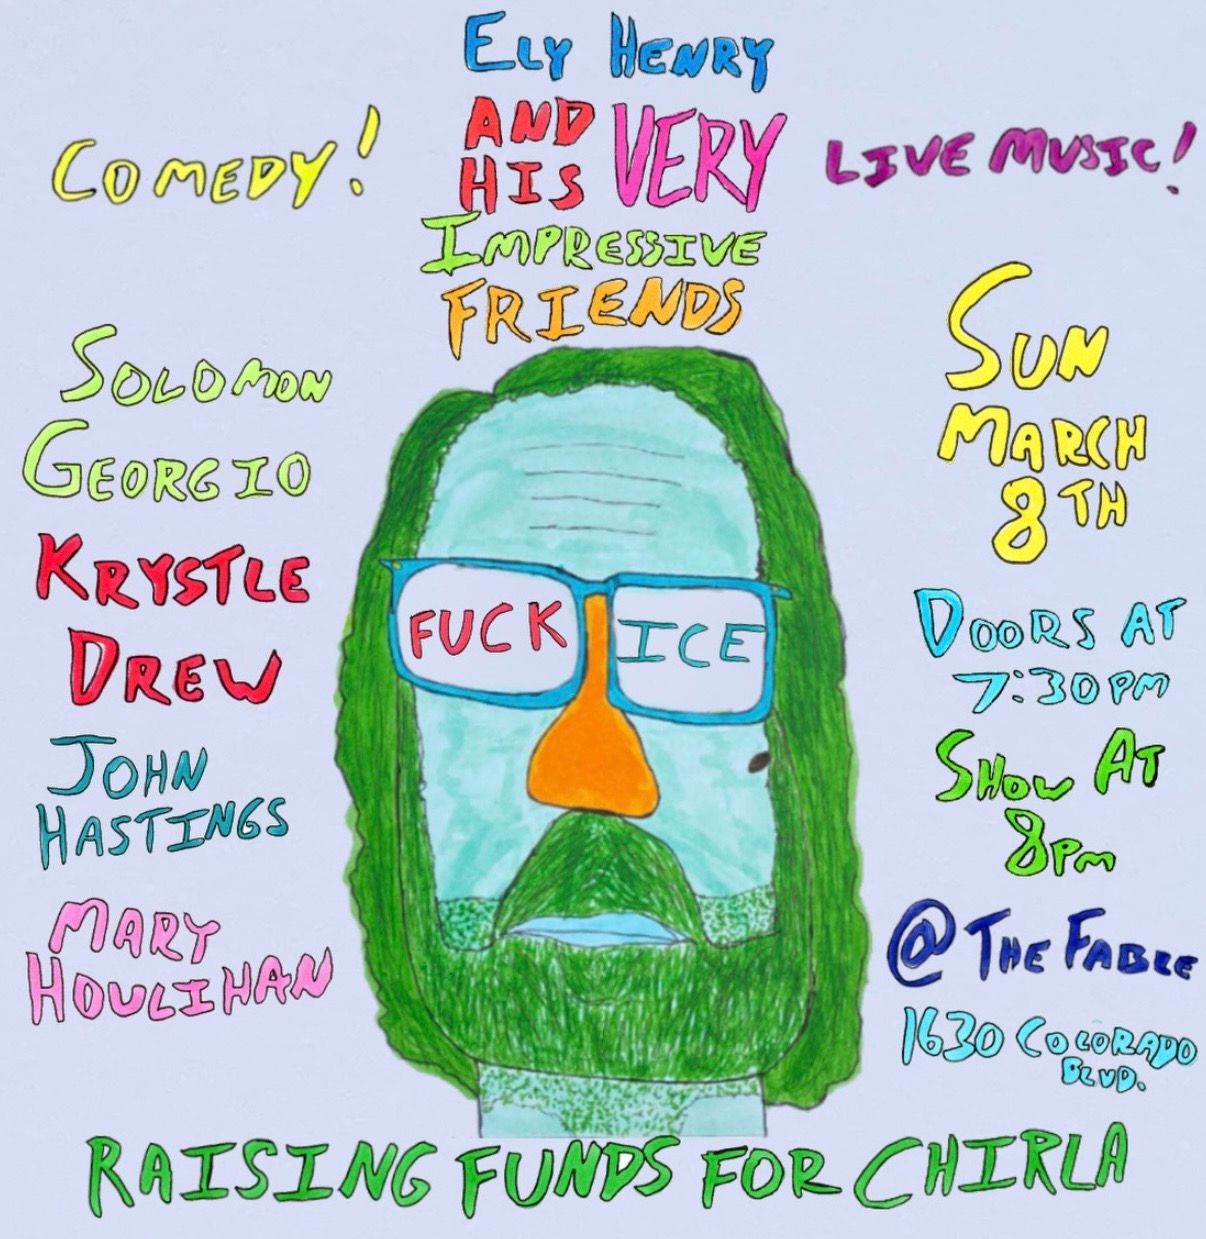 ELY HENRY
AND
HIS
VERY
IMPRESSIVE
FRIENDS
COMEDY!
LIVE MUSIC!
SOLOMON
GEORGIO
KRYSTLE
DREW
JOHN
HASTINGS
MARY
HOULIHAN
FUCK ICE
SUN
MARCH
8TH
DOORS AT
7:30PM
SHOW AT
8PM
@ THE FABLE
1630 COLORADO
BLVD.
RAISING FUNDS FOR CHIRLA